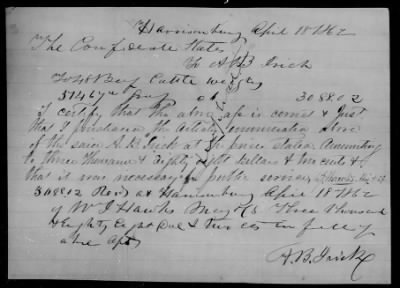 Harrisonburg April 18 1862
The Confederate States
To A B Irick
To 48 Beef Cattle weighing
51467 3088.02
I certify that the above a/c is correct & just
that I purchased the articles enumerated above
of the said A. B. Irick at the prices stated amounting
to three thousand & Eighty eight dollars & two cents &
that it was necessary for public service
3088.02 Recd at Harrisonburg April 18 1862
of W. J. Hawks Maj & CS Three thousand
& Eighty Eight Dol & two cts in full of
above a/c
A. B. Irick